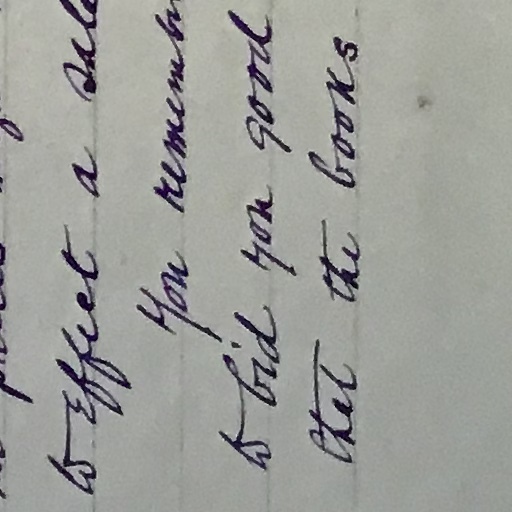 to Effect a sale
You remember
to bid you good
that the books